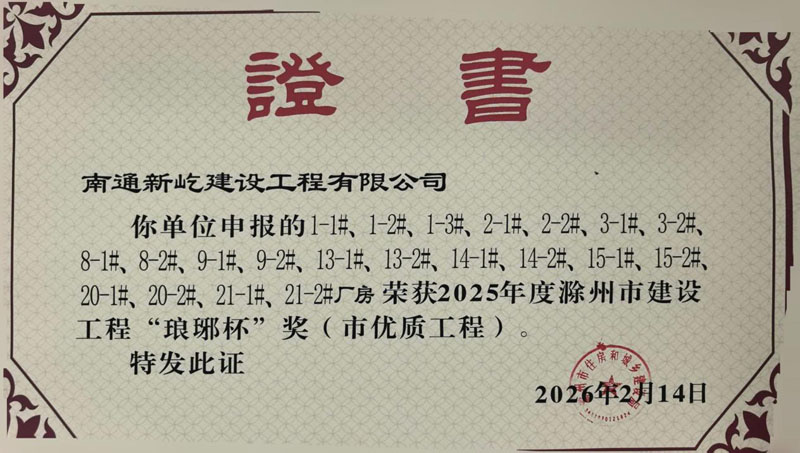 證書
南通新屹建设工程有限公司
你单位申报的1-1#、1-2#、1-3#、2-1#、2-2#、3-1#、3-2#、
8-1#、8-2#、9-1#、9-2#、13-1#、13-2#、14-1#、14-2#、15-1#、15-2#、
20-1#、20-2#、21-1#、21-2#厂房荣获2025年度滁州市建设
工程“琅琊杯”奖（市优质工程）。
特发此证
2026年2月14日
州市住房和城乡建设局